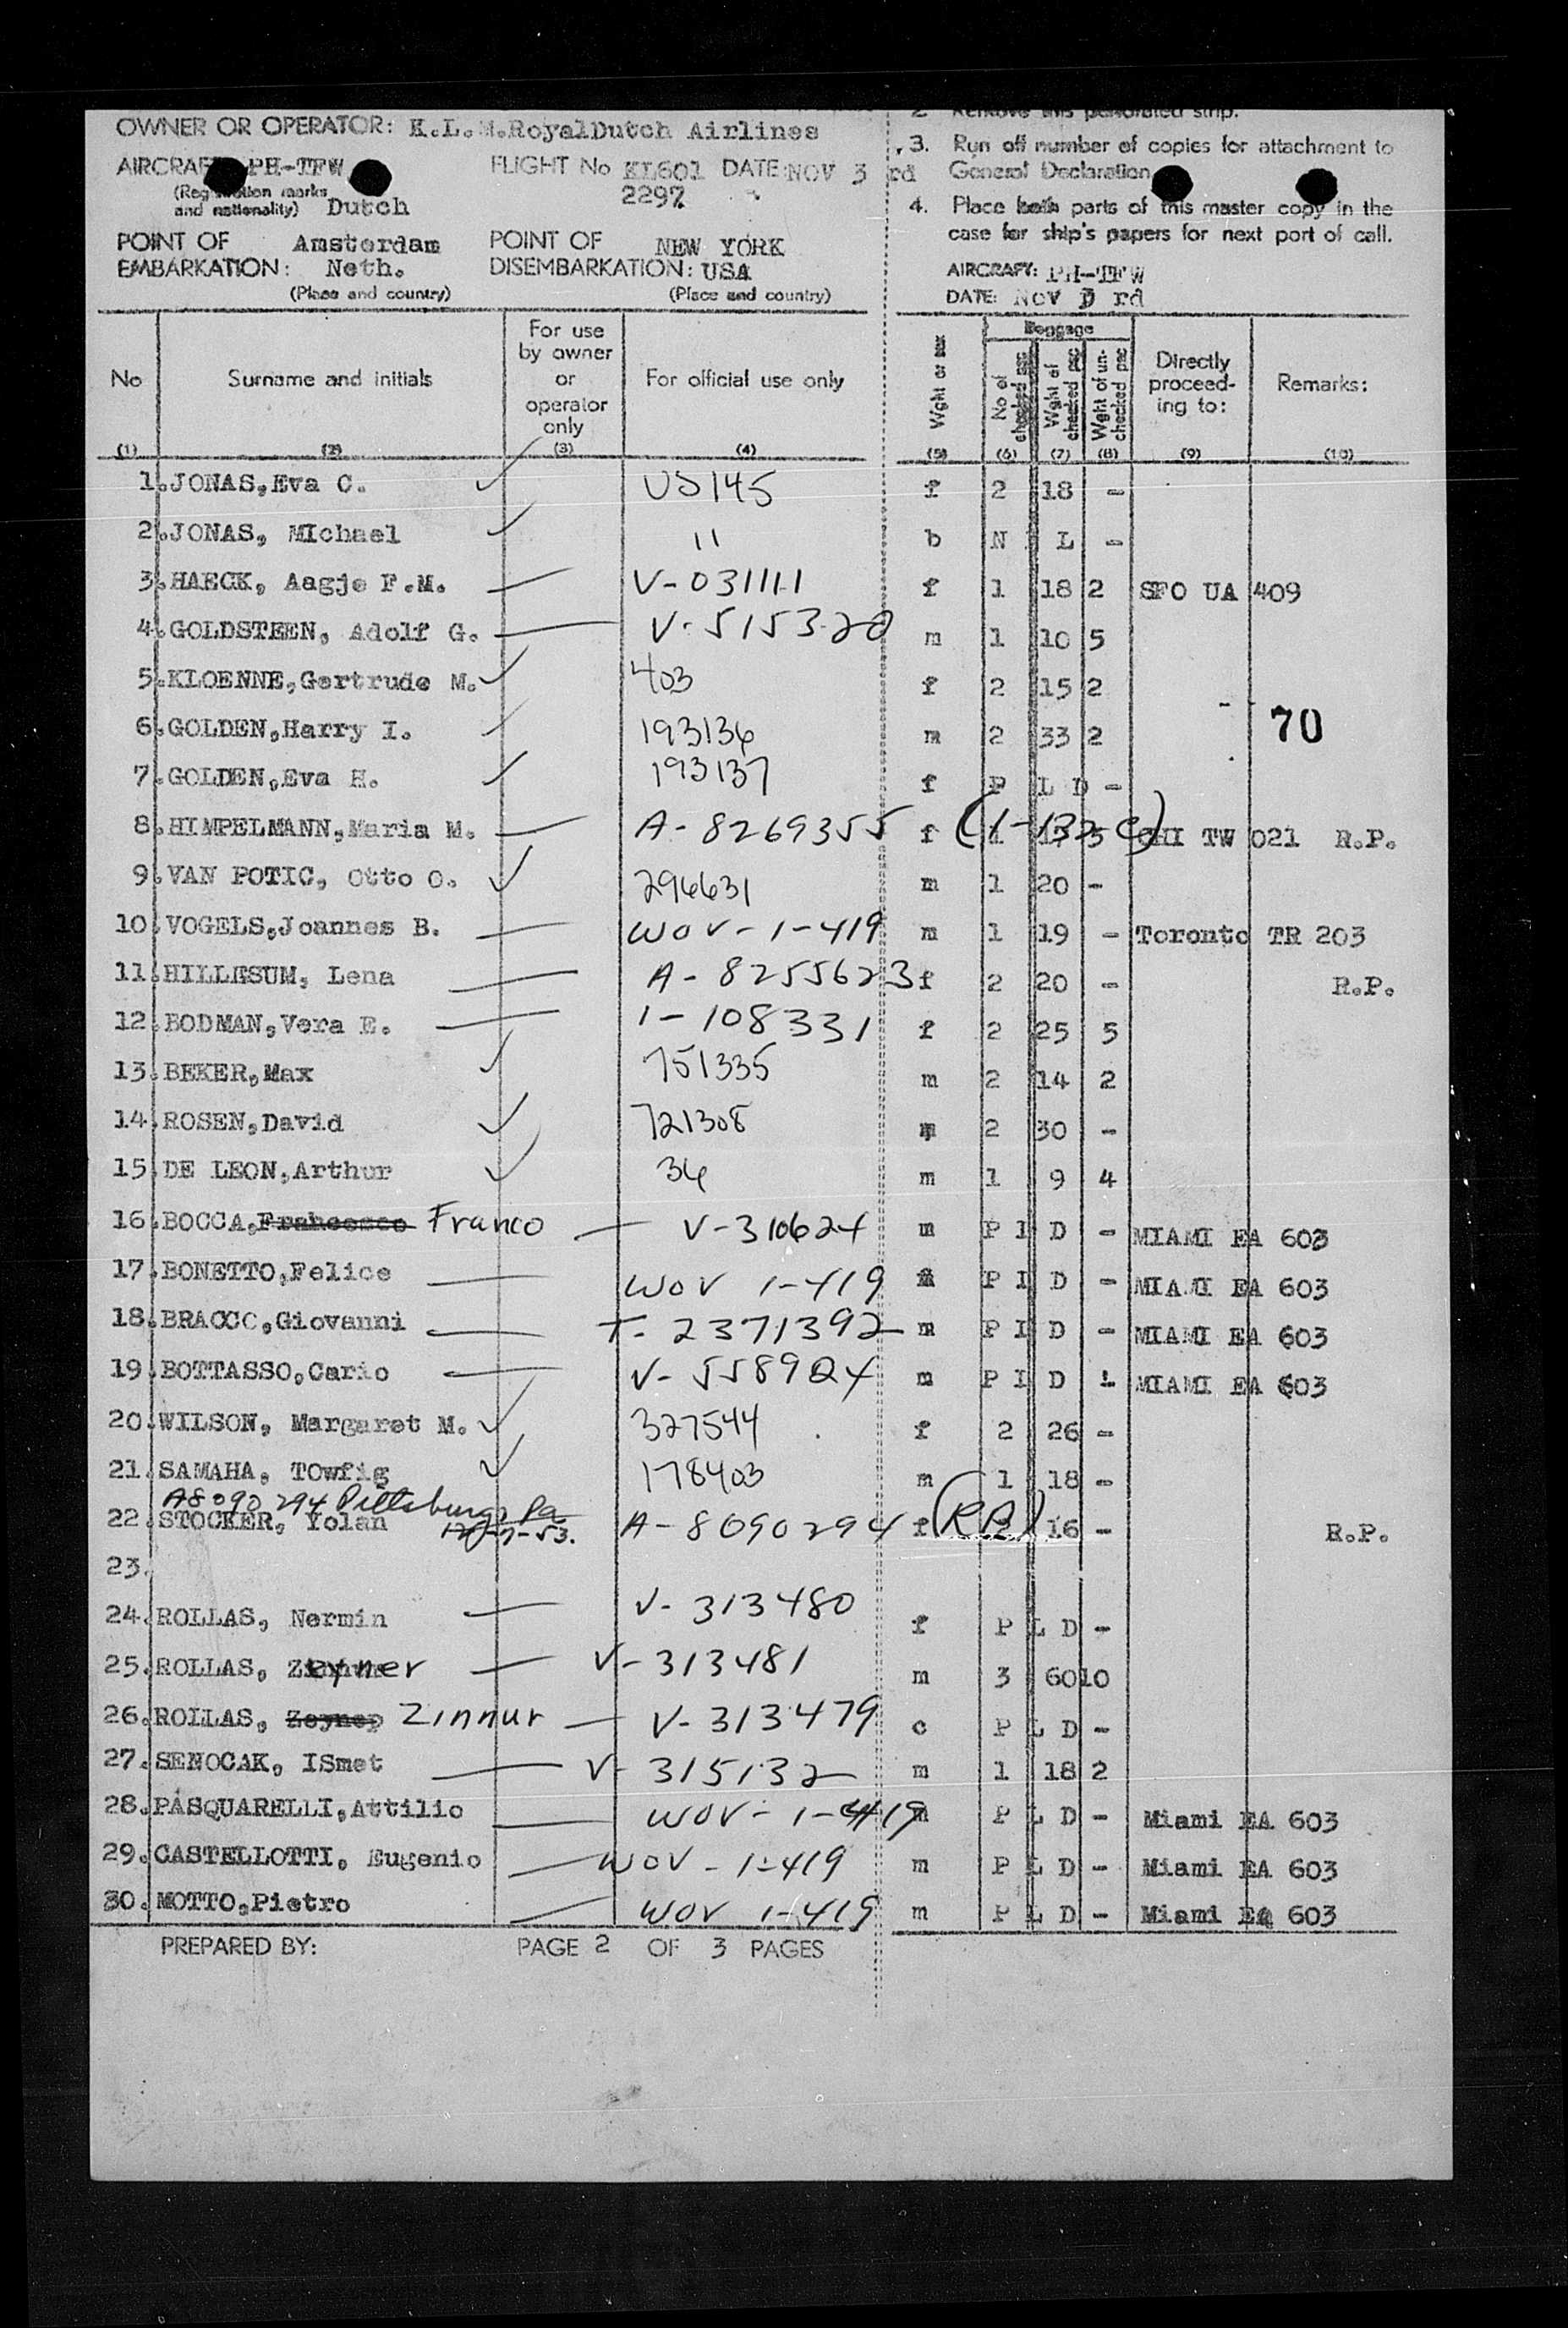 OWNER OR OPERATOR: K.L.M.RoyalDutch Airlines
AIRCRAFT PH-TFW FLIGHT No KL601 DATE:NOV 3 rd
(Registration marks and nationality) Dutch 2297
POINT OF EMBARKATION: Amsterdam Neth. POINT OF DISEMBARKATION: NEW YORK USA
(Place and country) (Place and country)
2 Remove this perforated strip.
3. Run off number of copies for attachment to
General Declaration
4. Place both parts of this master copy in the
case for ship's papers for next port of call.
AIRCRAFT: PH-TFW
DATE: Nov 3 rd
No Surname and initials For use by owner or operator only For official use only Wght or sex Baggage No of checked pcs Wght of checked pcs Wght of un-checked pcs Directly proceed-ing to: Remarks:
(1) (2) (3) (4) (5) (6) (7) (8) (9) (10)
1.JONAS,Eva C. ✓ US145 f 2 18 -
2.JONAS, MIchael ✓ 11 b N L -
3.HAECK, Aagje F.M. — V-031111 f 1 18 2 SFO UA 409
4.GOLDSTEEN, Adolf G. — V-515320 m 1 10 5
5.KLOENNE,Gertrude M. ✓ 403 f 2 15 2
70
6.GOLDEN,Harry I. ✓ 193136 m 2 33 2
7.GOLDEN,Eva H. ✓ 193137 f P L D -
8.HIMPELMANN,Maria M. — A-8269355 f (1-132-C) 1 17 5 CHI TW 021 R.P.
9.VAN POTIC, Otto O. ✓ 296631 m 1 20 -
10.VOGELS,Joannes B. — WOV-1-419 m 1 19 - Toronto TR 203
11.HILLESUM, Lena — A-8255623 f 2 20 - R.P.
12.BODMAN,Vera E. — 1-108331 f 2 25 5
13.BEKER,Max ✓ 751335 m 2 14 2
14.ROSEN,David ✓ 721308 m 2 30 -
15.DE LEON,Arthur ✓ 36 m 1 9 4
16.BOCCA,Francesco Franco — V-310624 m P I D - MIAMI EA 603
17.BONETTO,Felice — WOV 1-419 m P I D - MIAMI EA 603
18.BRACCO,Giovanni — T-2371392 m P I D - MIAMI EA 603
19.BOTTASSO,Carlo — V-558924 m P I D - MIAMI EA 603
20.WILSON, Margaret M. ✓ 327544 f 2 26 -
21.SAMAHA, TOwfig ✓ 178403 m 1 18 -
A8090294 Pittsburgh Pa
22.STOCKER, Yolan A-8090294 f (RP) 16 - R.P.
23.
24.ROLLAS, Nermin — V-313480 f P L D -
25.ROLLAS, Zeyner — V-313481 m 3 60 10
26.ROLLAS, Zeynep Zinnur — V-313479 c P L D -
27.SENOCAK, ISmet — V-315132 m 1 18 2
28.PASQUARELLI,Attilio — WOV-1-419 m P L D - Miami EA 603
29.CASTELLOTTI, Eugenio — WOV-1-419 m P L D - Miami EA 603
30.MOTTO,Pietro — WOV 1-419 m P L D - Miami EA 603
PREPARED BY: PAGE 2 OF 3 PAGES